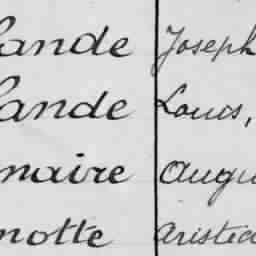 lande Joseph
lande Louis,
maire Augu
motte Aristid